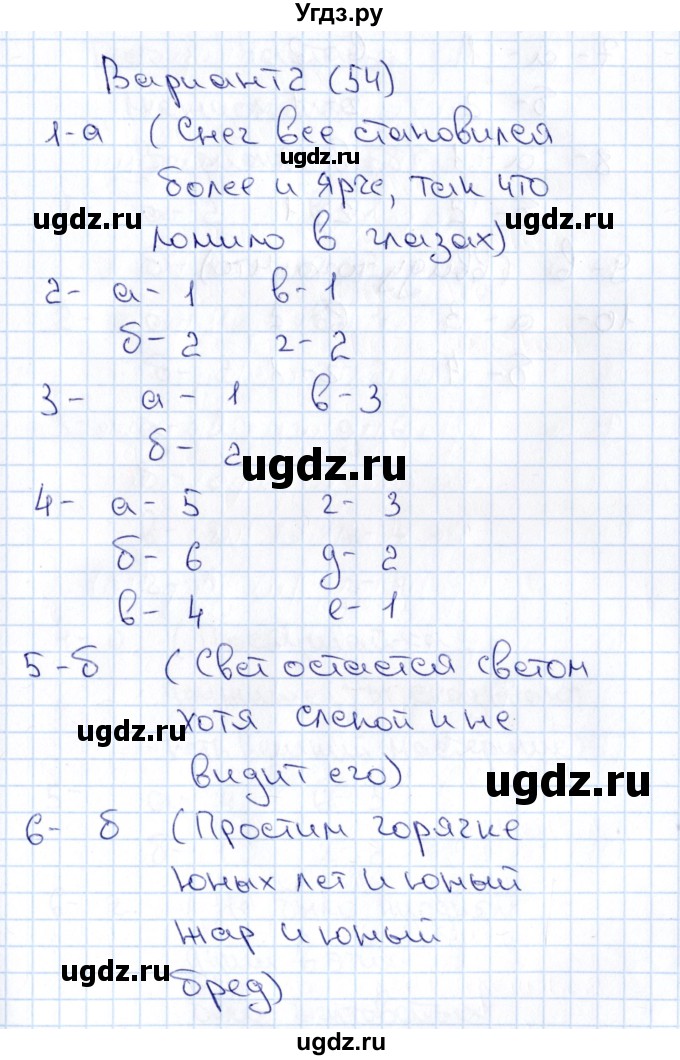 Угдз.ру
Вариант 2 (54)
1-а (Снег все становился
ugdz.ru
более и ярче, так что
ugdz.ru
ломило в глазах)
2- а- 1 в- 1
б- 2 г- 2
3- а- 1 в-3
б- 2
ugdz.ru
4- а- 5 г- 3
б- 6 д- 2
в- 4 е- 1
5-б (Свет остается светом
ugdz.ru
хотя слепой и не
ugdz.ru
видит его)
6- б (Простим горячке
юных лет и юный
жар и юный
ugdz.ru
бред)
ugdz.ru